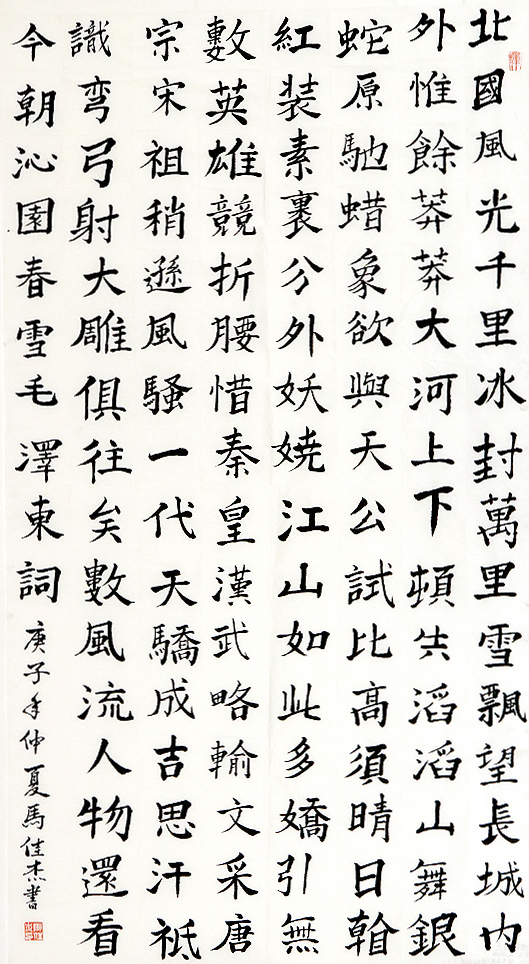 北國風光千里冰封萬里雪飄望長城内
外惟餘莽莽大河上下頓失滔滔山舞銀
蛇原馳蜡象欲與天公試比高須晴日看
紅装素裹分外妖嬈江山如此多嬌引無
數英雄競折腰惜秦皇漢武略輸文采唐
宗宋祖稍遜風騷一代天驕成吉思汗祗
識彎弓射大雕俱往矣數風流人物還看
今朝沁園春雪毛澤東詞
庚子年仲夏馬佳杰書